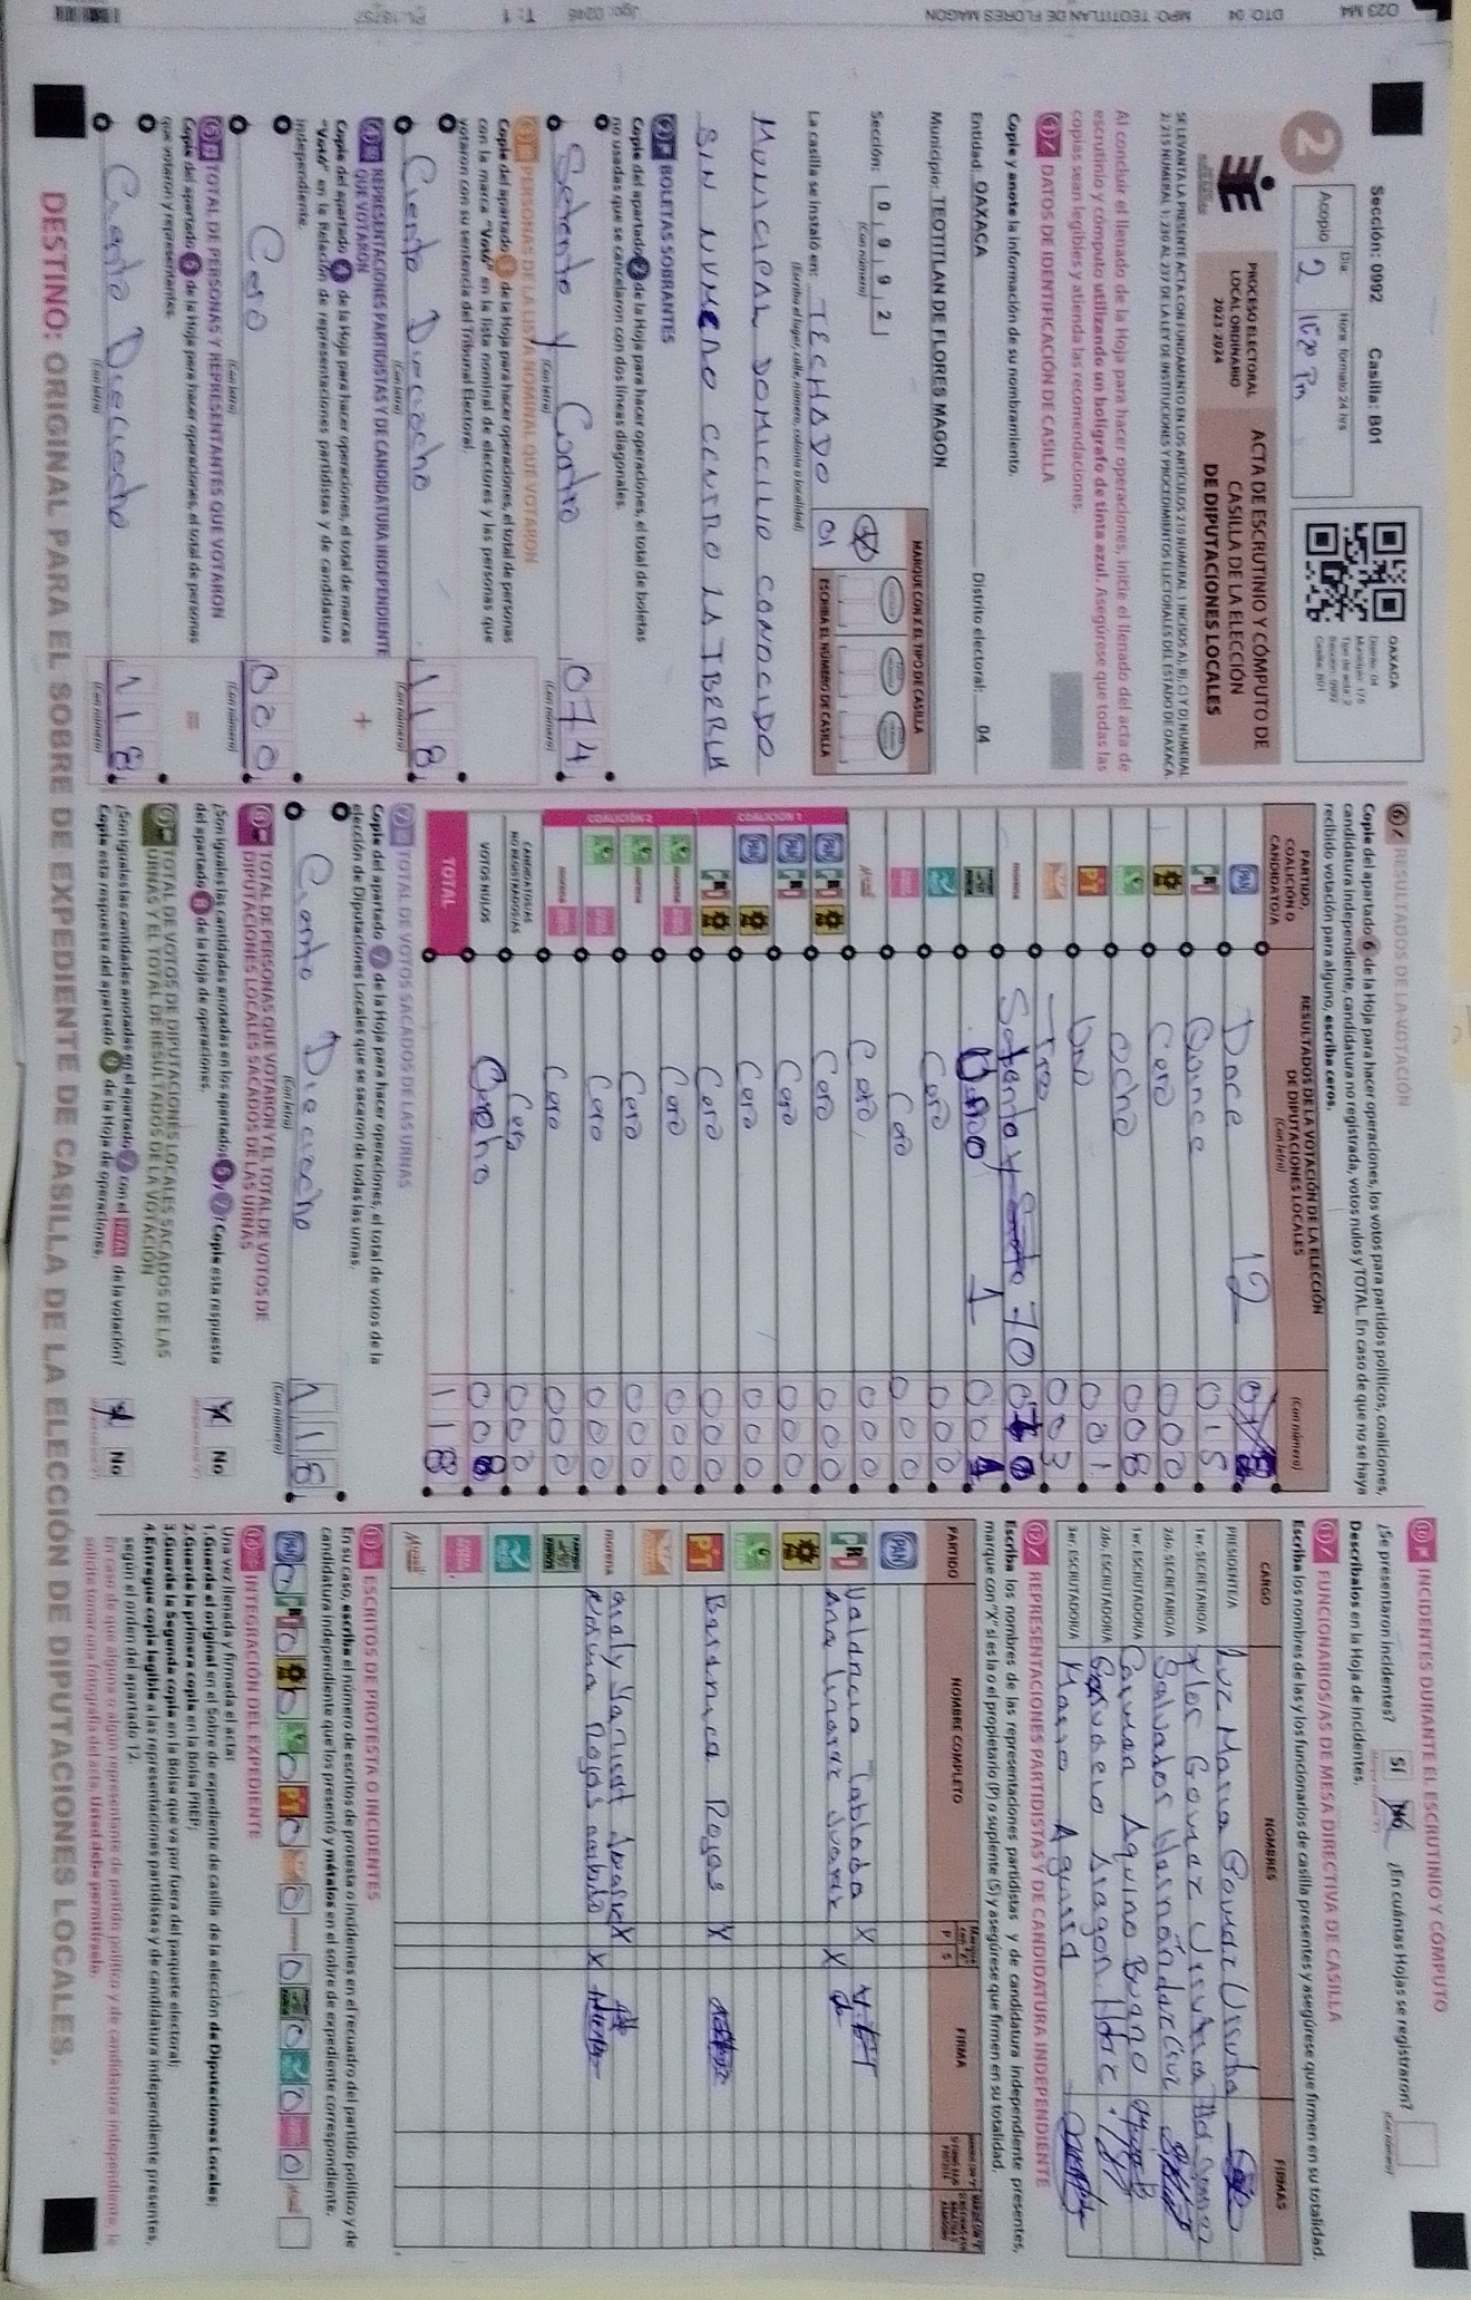 Sección: 0992 Casilla: B01
Día Hora formato 24 hrs
2 Acopio 2 11:20 Pm
OAXACA
Distrito: 04
Municipio: 176
Tipo de acta: 2
Sección: 0992
Casilla: B01
PROCESO ELECTORAL
LOCAL ORDINARIO
2023-2024
ACTA DE ESCRUTINIO Y CÓMPUTO DE
CASILLA DE LA ELECCIÓN
DE DIPUTACIONES LOCALES
SE LEVANTA LA PRESENTE ACTA CON FUNDAMENTO EN LOS ARTÍCULOS 210 NUMERAL 1 INCISOS A), B), C) Y D) NUMERAL
2; 215 NUMERAL 1; 230 AL 237 DE LA LEY DE INSTITUCIONES Y PROCEDIMIENTOS ELECTORALES DEL ESTADO DE OAXACA.
Al concluir el llenado de la Hoja para hacer operaciones, inicie el llenado del acta de
escrutinio y cómputo utilizando un bolígrafo de tinta azul. Asegúrese que todas las
copias sean legibles y atienda las recomendaciones.
1 DATOS DE IDENTIFICACIÓN DE CASILLA
Copie y anote la información de su nombramiento.
Entidad: OAXACA Distrito electoral: 04
Municipio: TEOTITLAN DE FLORES MAGON
MARQUE CON X EL TIPO DE CASILLA
Sección: 0 9 9 2
(Con número)
ESCRIBA EL NÚMERO DE CASILLA
01
La casilla se instaló en: TECHADO
(Escriba el lugar, calle, número, colonia o localidad)
MUNICIPAL DOMICILIO CONOCIDO
SIN NUMERO CENTRO LA IBERIA
2 BOLETAS SOBRANTES
Copie del apartado 2 de la Hoja para hacer operaciones, el total de boletas
no usadas que se cancelaron con dos líneas diagonales.
Setenta y Cuatro 074
(Con letra) (Con número)
3 PERSONAS DE LA LISTA NOMINAL QUE VOTARON
Copie del apartado 3 de la Hoja para hacer operaciones, el total de personas
con la marca "Votó" en la lista nominal de electores y las personas que
votaron con su sentencia del Tribunal Electoral.
Ciento Dieciocho 118
(Con letra) (Con número)
4 REPRESENTACIONES PARTIDISTAS Y DE CANDIDATURA INDEPENDIENTE
QUE VOTARON
Copie del apartado 4 de la Hoja para hacer operaciones, el total de marcas
"Votó" en la Relación de representaciones partidistas y de candidatura
independiente.
+
Cero 000
(Con letra) (Con número)
5 TOTAL DE PERSONAS Y REPRESENTANTES QUE VOTARON
Copie del apartado 5 de la Hoja para hacer operaciones, el total de personas
que votaron y representantes.
=
Ciento Dieciocho 118
(Con letra) (Con número)
6 RESULTADOS DE LA VOTACIÓN
Copie del apartado 6 de la Hoja para hacer operaciones, los votos para partidos políticos, coaliciones,
candidatura independiente, candidatura no registrada, votos nulos y TOTAL. En caso de que no se haya
recibido votación para alguno, escriba ceros.
PARTIDO,
COALICIÓN O
CANDIDATO/A
RESULTADOS DE LA VOTACIÓN DE LA ELECCIÓN
DE DIPUTACIONES LOCALES
(Con letra) (Con número)
PAN Doce 12
PRI Quince 015
Cero 000
ocho 008
PT Uno 001
Tres 003
morena Setenta y 70
Uno 1 001
Cero 000
Cero 000
Cero 000
COALICIÓN 1
PAN PRI Cero 000
PAN PRI Cero 000
PAN Cero 000
PRI Cero 000
COALICIÓN 2
morena Cero 000
morena Cero 000
Cero 000
morena Cero 000
CANDIDATOS/AS
NO REGISTRADOS/AS Cero 000
VOTOS NULOS Ocho 008
TOTAL 118
7 TOTAL DE VOTOS SACADOS DE LAS URNAS
Copie del apartado 7 de la Hoja para hacer operaciones, el total de votos de la
elección de Diputaciones Locales que se sacaron de todas las urnas.
Ciento Dieciocho 118
(Con letra) (Con número)
8 TOTAL DE PERSONAS QUE VOTARON Y EL TOTAL DE VOTOS DE
DIPUTACIONES LOCALES SACADOS DE LAS URNAS
¿Son iguales las cantidades anotadas en los apartados 5 y 7? Copie esta respuesta
del apartado 8 de la Hoja de operaciones.
No
9 TOTAL DE VOTOS DE DIPUTACIONES LOCALES SACADOS DE LAS
URNAS Y EL TOTAL DE RESULTADOS DE LA VOTACIÓN
¿Son iguales las cantidades anotadas en el apartado 7 con el TOTAL de la votación?
Copie esta respuesta del apartado 9 de la Hoja de operaciones.
No
10 INCIDENTES DURANTE EL ESCRUTINIO Y CÓMPUTO
¿Se presentaron incidentes? SI NO ¿En cuántas Hojas se registraron?
(Con número)
Descríbalos en la Hoja de incidentes.
11 FUNCIONARIOS/AS DE MESA DIRECTIVA DE CASILLA
Escriba los nombres de las y los funcionarios de casilla presentes y asegúrese que firmen en su totalidad.
CARGO NOMBRES FIRMAS
PRESIDENTE/A Luz Maria Gomez Urrutia
1er. SECRETARIO/A Flor Gomez Urrutia
2do. SECRETARIO/A Salvador Hernández Cruz
1er. ESCRUTADOR/A Carmen Aquino Bueno
2do. ESCRUTADOR/A Aragon
3er. ESCRUTADOR/A Aguirra
12 REPRESENTACIONES PARTIDISTAS Y DE CANDIDATURA INDEPENDIENTE
Escriba los nombres de las representaciones partidistas y de candidatura independiente presentes,
marque con "X" si es la o el propietario (P) o suplente (S) y asegúrese que firmen en su totalidad.
PARTIDO NOMBRE COMPLETO P S FIRMA
PAN
PRI Valdncia Tablada X
ana linarez Juarez X
PT Bassnica Rojas X
morena analy X
Rojas X
13 ESCRITOS DE PROTESTA O INCIDENTES
En su caso, escriba el número de escritos de protesta o incidentes en el recuadro del partido político y de
candidatura independiente que los presentó y métalos en el sobre de expediente correspondiente.
PAN 0 PRI 0 0 0 PT 0 0 0 0 0 0
14 INTEGRACIÓN DEL EXPEDIENTE
Una vez llenada y firmada el acta:
1. Guarde el original en el Sobre de expediente de casilla de la elección de Diputaciones Locales;
2. Guarde la primera copia en la Bolsa PREP;
3. Guarde la Segunda copia en la Bolsa que va por fuera del paquete electoral;
4. Entregue copia legible a las representaciones partidistas y de candidatura independiente presentes,
según el orden del apartado 12.
En caso de que alguna o algún representante de partido político y de candidatura independiente, le
solicite tomar una fotografía del acta. Usted debe permitírselo.
DESTINO: ORIGINAL PARA EL SOBRE DE EXPEDIENTE DE CASILLA DE LA ELECCIÓN DE DIPUTACIONES LOCALES.
023 M4 DTO: 04 MPO: TEOTITLAN DE FLORES MAGON Jgo: 0246 T: 1